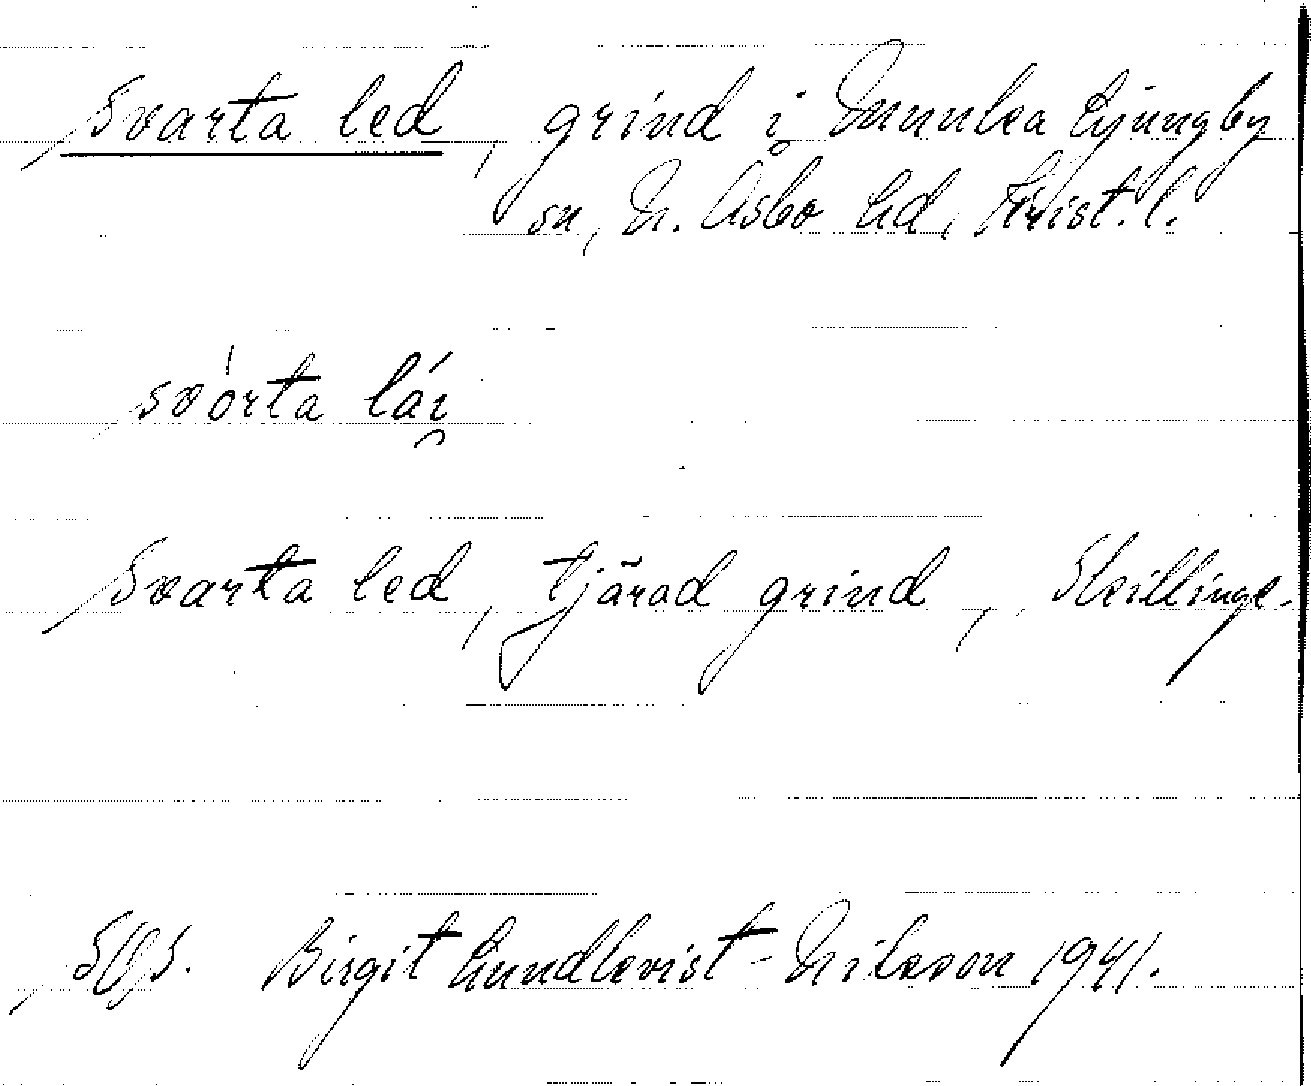 Svarta led, grind i Munka Ljungby
sn, N. Åsbo hd, Krist. l.
svórta lái̯
Svarta led, tjärad grind, Skillinge.
Birgit Lundkvist-Nilsson 1941.